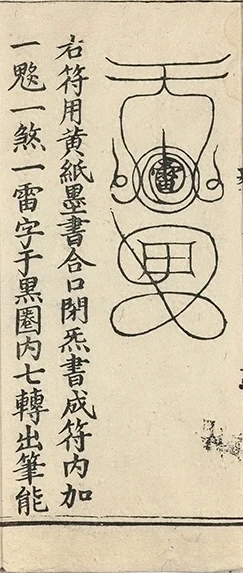 右符用黃紙墨書合口閉炁書成符內加
一一煞一雷字于黑圈內七轉出筆能
雷